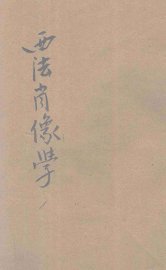 西法肖像学